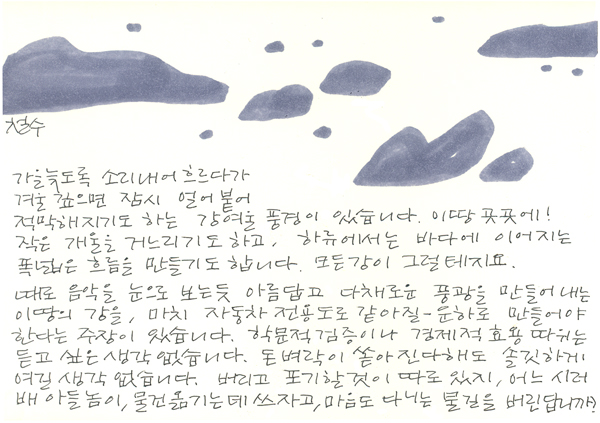 철수
가을늦도록 소리내어 흐르다가
겨울 깊으면 잠시 얼어붙어
적막해지기도 하는 강여울 풍경이 있습니다. 이땅 곳곳에!
작은 개울을 거느리기도 하고, 하류에서는 바다에 이어지는
폭넓은 흐름을 만들기도 합니다. 모든강이 그럴테지요.
때로 음악을 눈으로 보는듯 아름답고 다채로운 풍광을 만들어 내는
이땅의 강을, 마치 자동차 전용도로 같아질-운하로 만들어야
한다는 주장이 있습니다. 학문적 검증이나 경제적 효용 따위는
듣고 싶은 생각 없습니다. 돈벼락이 쏟아진다해도 솔깃하게
여길 생각 없습니다. 버리고 포기할것이 따로 있지, 어느 시러
배 아들놈이, 물건옮기는데 쓰자고, 마음도 다니는 물길을 버린답니까?